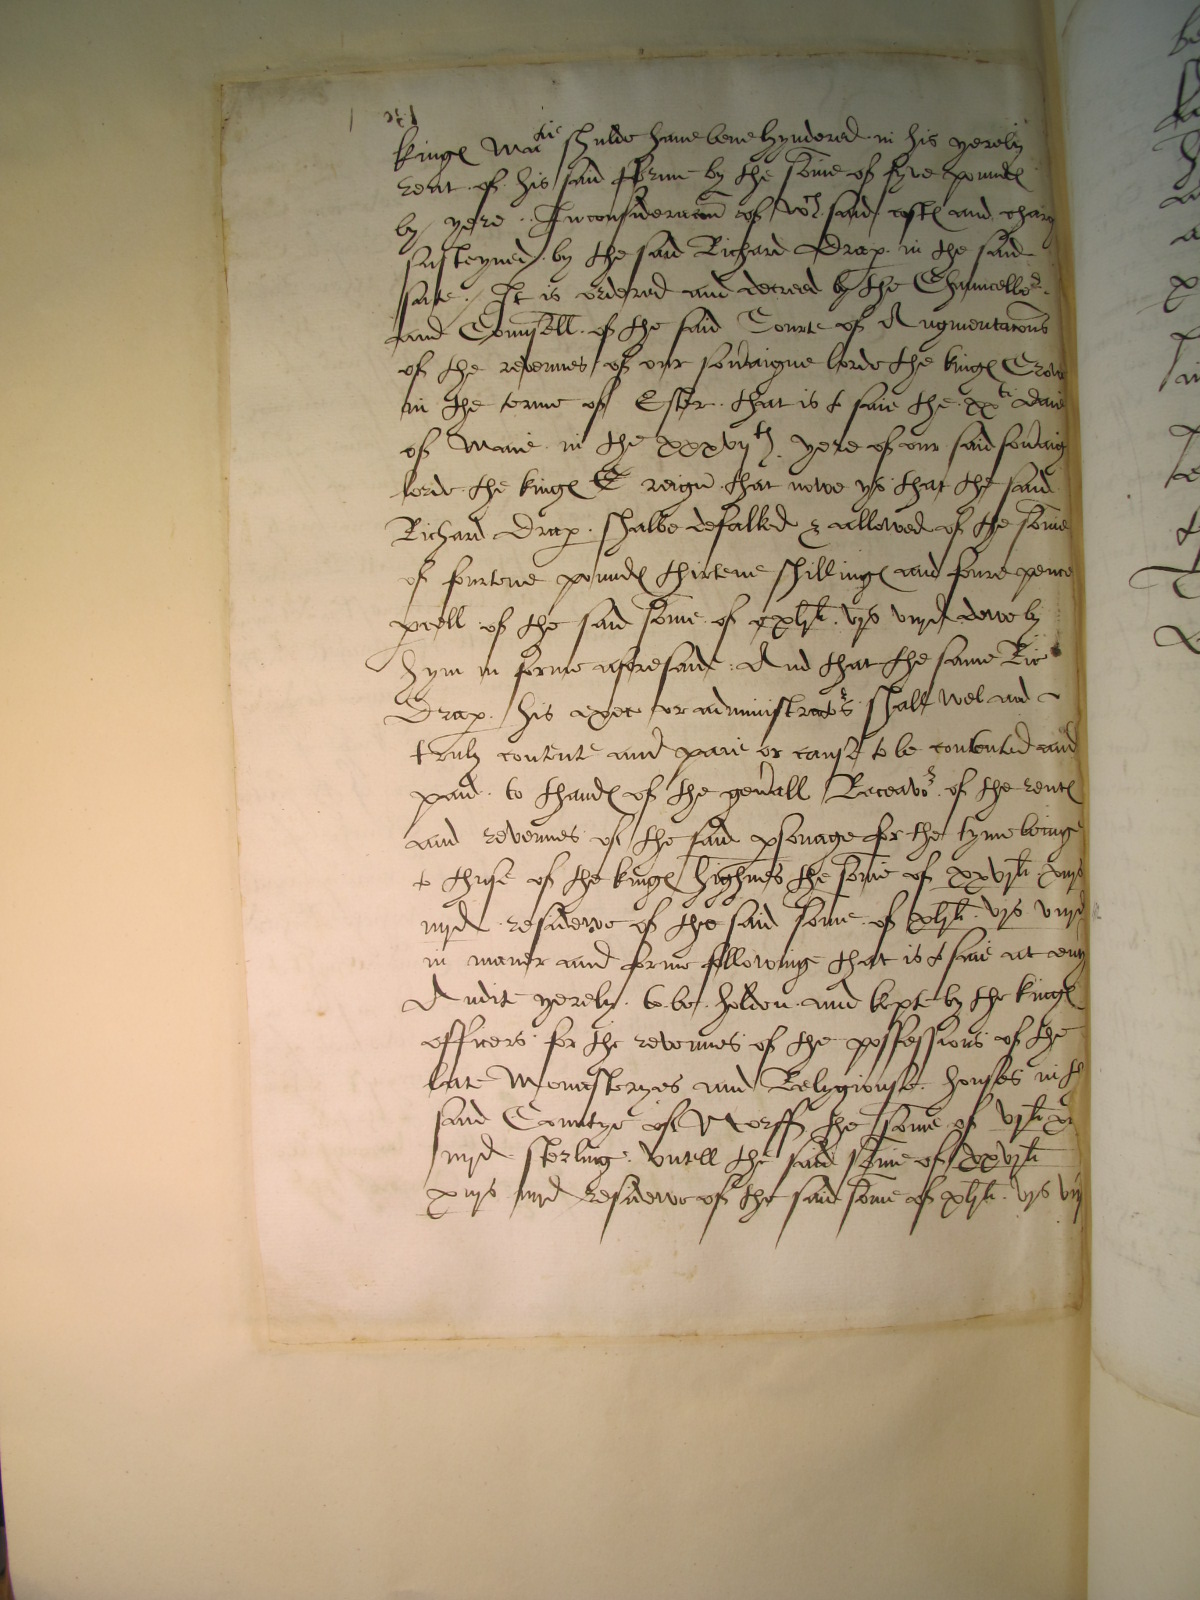 kinges Matie shulde have bene hyndered in his yerely
rent of his said fferme by the some of fyve poundes
by yere . In consideracon of wch said costes and charg
susteyned by the said Richard Drap in the said
sute . It is ordered and decreed by the Chauncellor
and Counsell of the said Courte of Augmentacons
of the revenues of our sovaigne lorde the kinges Crow
in the terme of Ester that is to saie the xxti daie
of Maie in the xxxvijth yere of our said sovaig
lorde the kinges reign that nowe ys that the said
Richard Drap shalbe defalked & allowed of the some
of fourtene poundes thirtene shillinges and foure pence
pcell of the said some of xlj li vjs viijd dewe by
hym in forme aforesaid : And that the same Ric
Drap his exec or administrators shall wel and
truly content and paie or cause to be contented and
paid to thandes of the genall Receavor of the rentes
and revenues of the said psonage for the tyme being
to thuse of the kinges highnes the some of xxvj li xiijs
iiijd residewe of the said some of xlj li vjs viijd
in maner and forme following that is to saie at evy
Audite yerely to be holden and kepte by the kinges
officers for the revenues of the possessions of the
late Monasteryes and Relygiouse houses in th
said Countye of Norff the some of vj li
iiijd sterling untell the said some of xxvj li
xiijs iiijd residewe of the said some of xlj li vjs viij